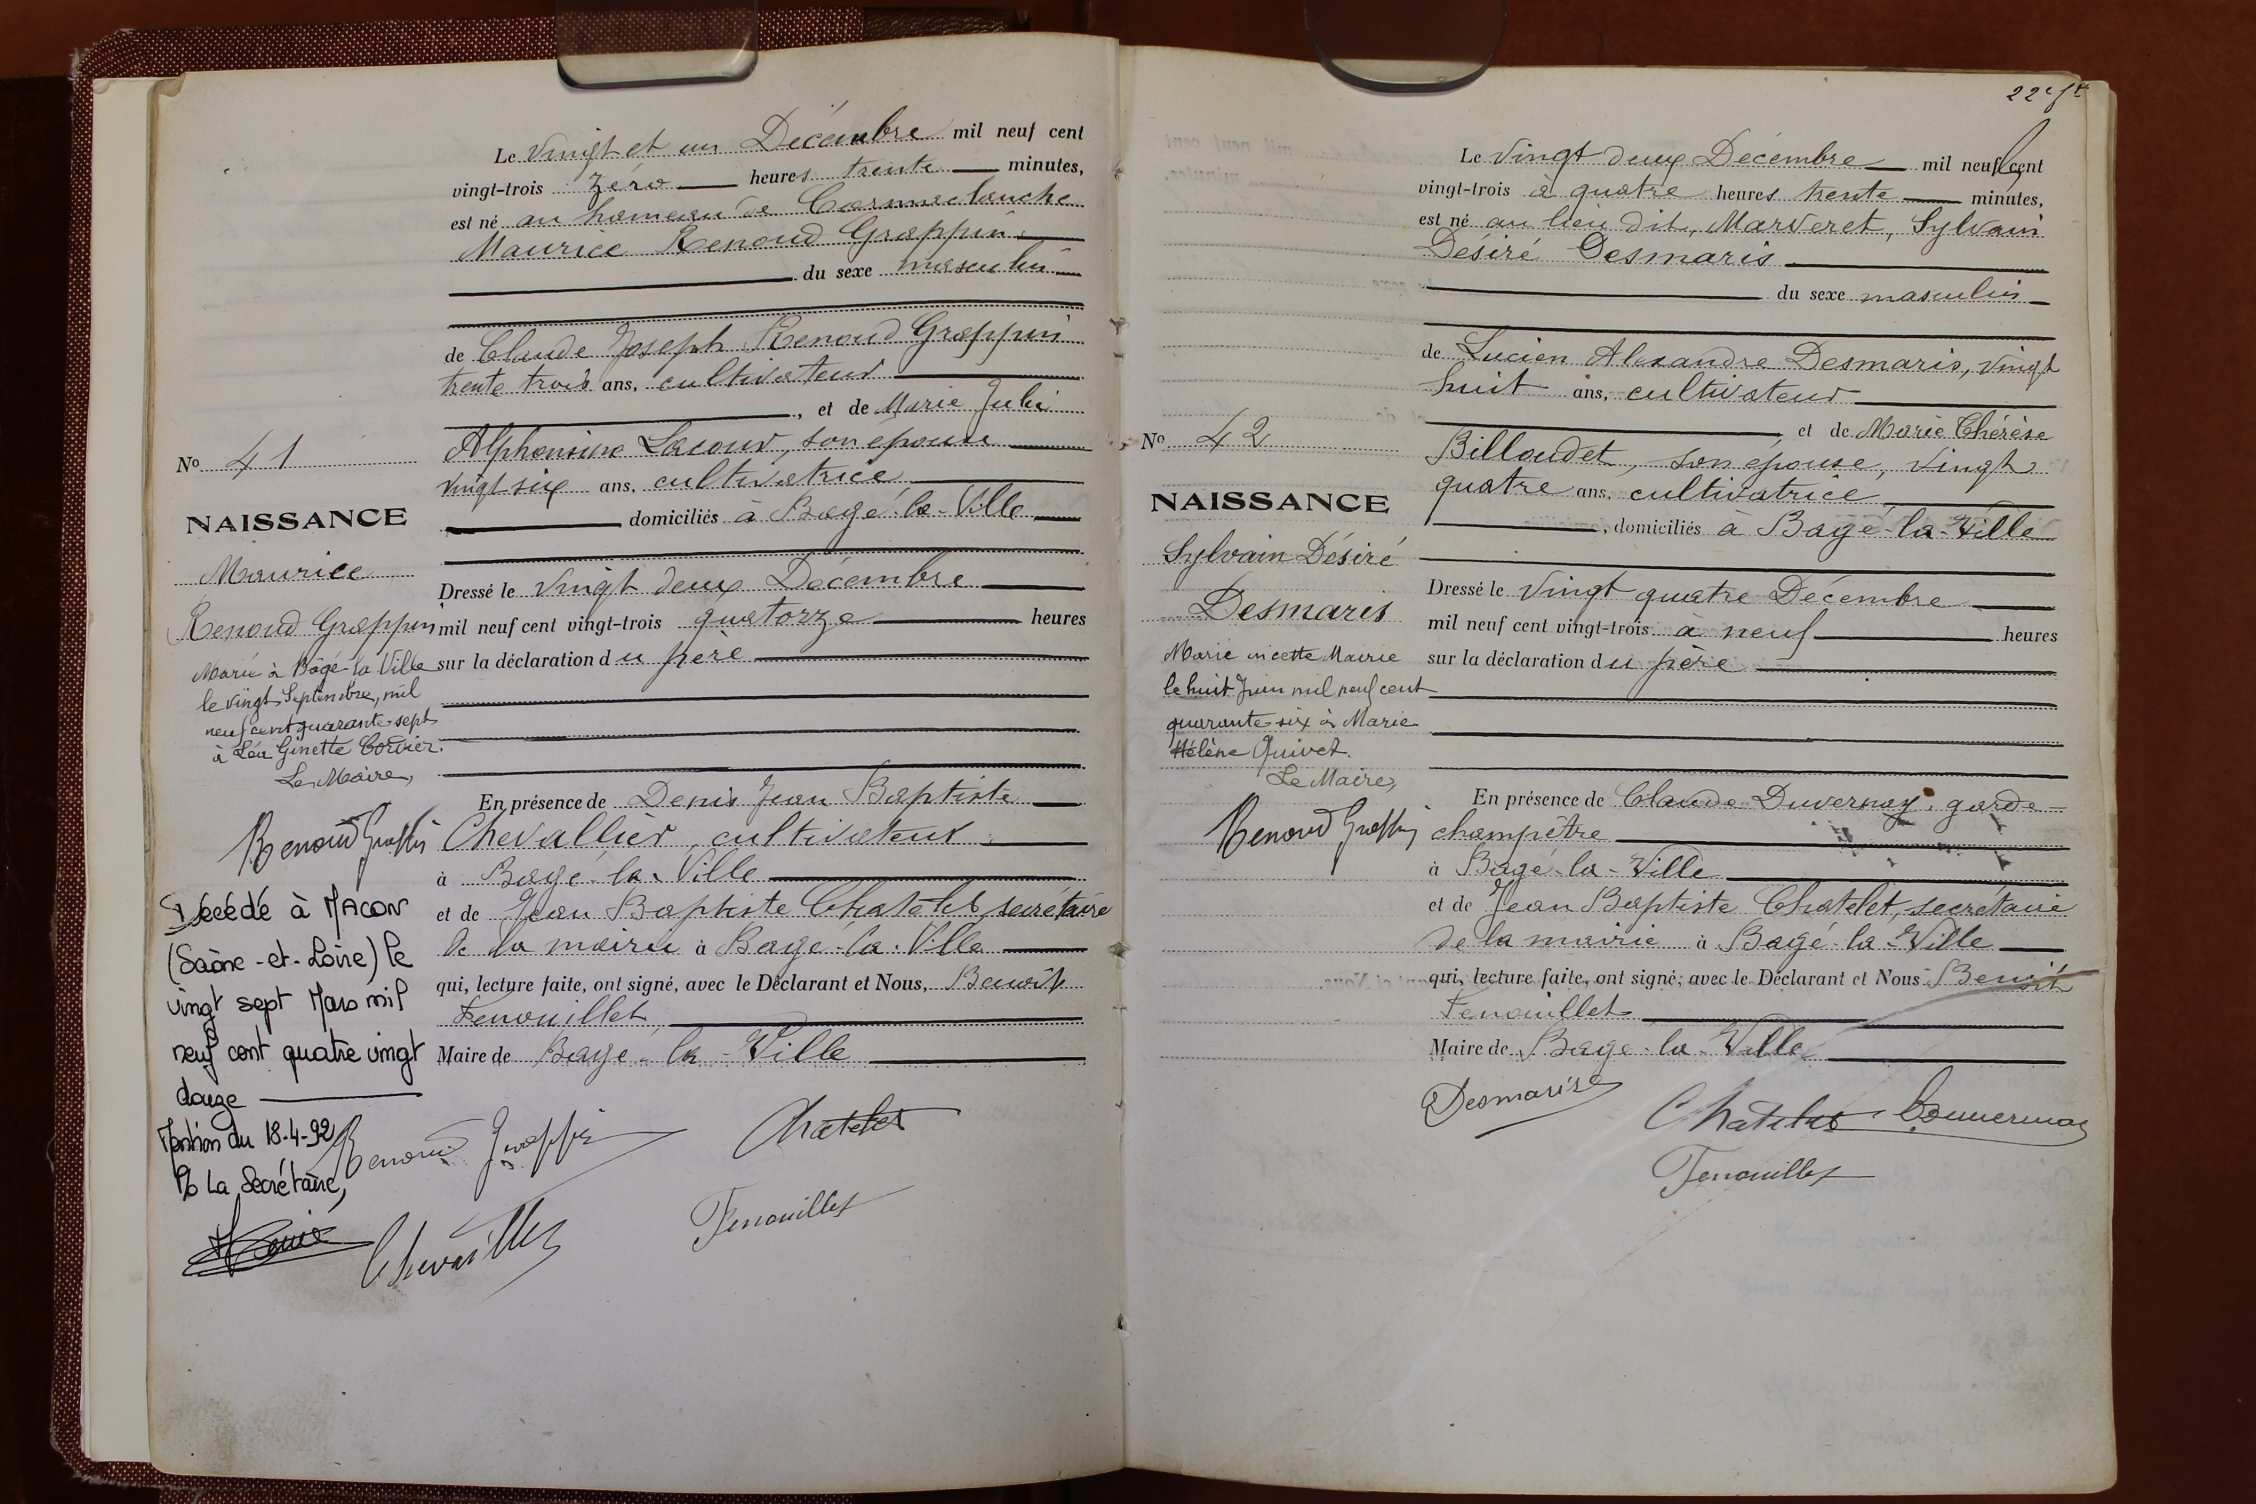 Le vingt et un Décembre mil neuf cent
vingt-trois zéro heures trente minutes,
est né au hameau de
Maurice Renoud Grappin
du sexe masculin
de Claude Joseph Renoud Grappin
trente trois ans, cultivateur
, et de Marie Julie
Alphonsine Lacour, son épouse
vingt six ans, cultivatrice
domiciliés à Bagé-la-Ville
Dressé le vingt deux Décembre
mil neuf cent vingt-trois quatorze heures
sur la déclaration du père
En présence de Denis Jean Baptiste
Chevallier, cultivateur
à Bagé-la-Ville
et de Jean Baptiste Chatelet, secrétaire
de la mairie à Bagé-la-Ville
qui, lecture faite, ont signé, avec le Déclarant et Nous, Benoît
Fenouillet
Maire de Bagé-la-Ville
Renoud Grappin
Chatelet
Chevallier
Fenouillet
No 41
NAISSANCE
Maurice
Renoud Grappin
Marié à Bâgé-la-Ville
le vingt Septembre, mil
neuf cent quarante-sept
à Léa Ginette Cordier.
Le Maire,
Renoud Grappin
Décédé à MACON
(Saône-et-Loire) le
vingt sept Mars mil
neuf cent quatre vingt
douze
Mention du 18-4-92
P/o La Secrétaire,
Le vingt deux Décembre mil neuf cent
vingt-trois à quatre heures trente minutes,
est né au lieu dit, Marveret, Sylvain
Désiré Desmaris
du sexe masculin
de Lucien Alexandre Desmaris, vingt
huit ans, cultivateur
et de Marie Thérèse
Billoudet, son épouse, vingt
quatre ans, cultivatrice
, domiciliés à Bagé-la-Ville
Dressé le vingt quatre Décembre
mil neuf cent vingt-trois à neuf heures
sur la déclaration du père
En présence de Claude Duvernay, garde-
champêtre
à Bagé-la-Ville
et de Jean Baptiste Chatelet, secrétaire
de la mairie à Bagé-la-Ville
qui, lecture faite, ont signé, avec le Déclarant et Nous Benoît
Fenouillet
Maire de Bagé-la-Ville
Desmaris
Chatelet
Fenouillet
No 42
NAISSANCE
Sylvain Désiré
Desmaris
Marié en cette Mairie
le huit Juin mil neuf cent
quarante-six à Marie
Hélène Guivet.
Le Maire,
Renoud Grappin